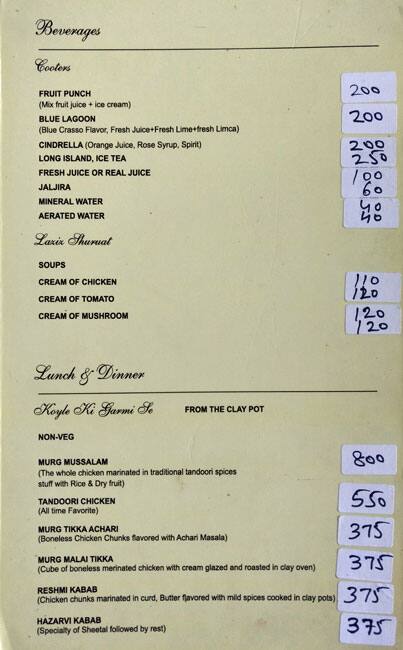 Beverages
Coolers
FRUIT PUNCH 200
(Mix fruit juice + ice cream)
BLUE LAGOON 200
(Blue Crasso Flavor, Fresh Juice+Fresh Lime+fresh Limca)
CINDRELLA (Orange Juice, Rose Syrup, Spirit) 200
LONG ISLAND, ICE TEA 250
FRESH JUICE OR REAL JUICE 100
JALJIRA 60
MINERAL WATER 40
AERATED WATER 40
Laziz Shuruat
SOUPS
CREAM OF CHICKEN 110
120
CREAM OF TOMATO
CREAM OF MUSHROOM 120
120
Lunch & Dinner
Koyle Ki Garmi Se FROM THE CLAY POT
NON-VEG
MURG MUSSALAM 800
(The whole chicken marinated in traditional tandoori spices
stuff with Rice & Dry fruit)
TANDOORI CHICKEN 550
(All time Favorite)
MURG TIKKA ACHARI 375
(Boneless Chicken Chunks flavored with Achari Masala)
MURG MALAI TIKKA 375
(Cube of boneless merinated chicken with cream glazed and roasted in clay oven)
RESHMI KABAB 375
(Chicken chunks marinated in curd, Butter flavored with mild spices cooked in clay pots)
HAZARVI KABAB 375
(Specialty of Sheetal followed by rest)